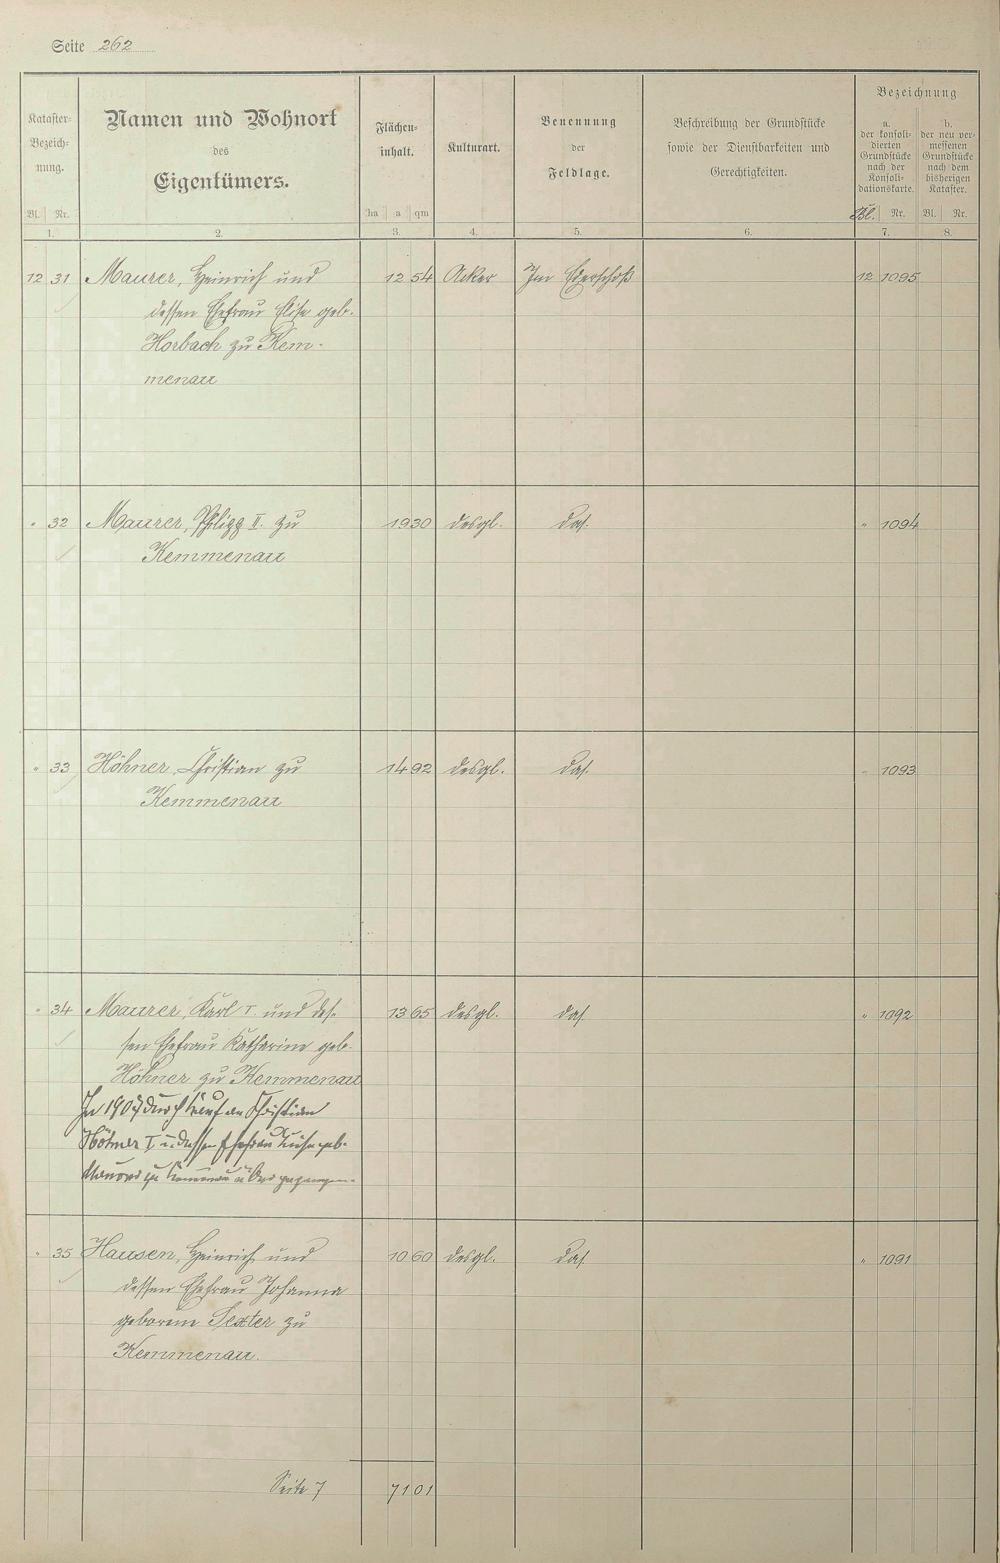 Seite 262
Kataster-Bezeich-nung. Namen und Wohnort des Eigentümers. Flächen-inhalt. Kulturart. Benennung der Feldlage. Beschreibung der Grundstücke sowie der Dienstbarkeiten und Gerechtigkeiten. Bezeichnung
a. der konsoli-dierten Grundstücke nach der Konsoli-dationskarte. b. der neu ver-messenen Grundstücke nach dem bisherigen Kataster.
Bl. Nr. ha a qm Bl. Nr. Bl. Nr.
1. 2. 3. 4. 5. 6. 7. 8.
12 31 Maurer, Heinrich und 12 54 Acker Im Ederschoß 12 1095
dessen Ehefrau Elise geb.
Horbach zu Kem-
menau
" 32 Maurer, Philipp II. zu 19 30 desgl. das. " 1094
Kemmenau
" 33 Höhner, Christian zu 14 92 desgl. das. " 1093
Kemmenau
" 34 Maurer, Karl I. und des- 13 65 desgl. das " 1092
sen Ehefrau Katharine geb.
Höhner zu Kemmenau
In 1907 durch Kauf an Christian
Höhner I u. dessen Ehefrau Luise geb.
Maurer zu Kemmenau gegangen.
" 35 Hausen, Heinrich und 10 60 desgl. das. " 1091
dessen Ehefrau Johanna
geborene Sexter zu
Kemmenau.
Seite 7 71 01